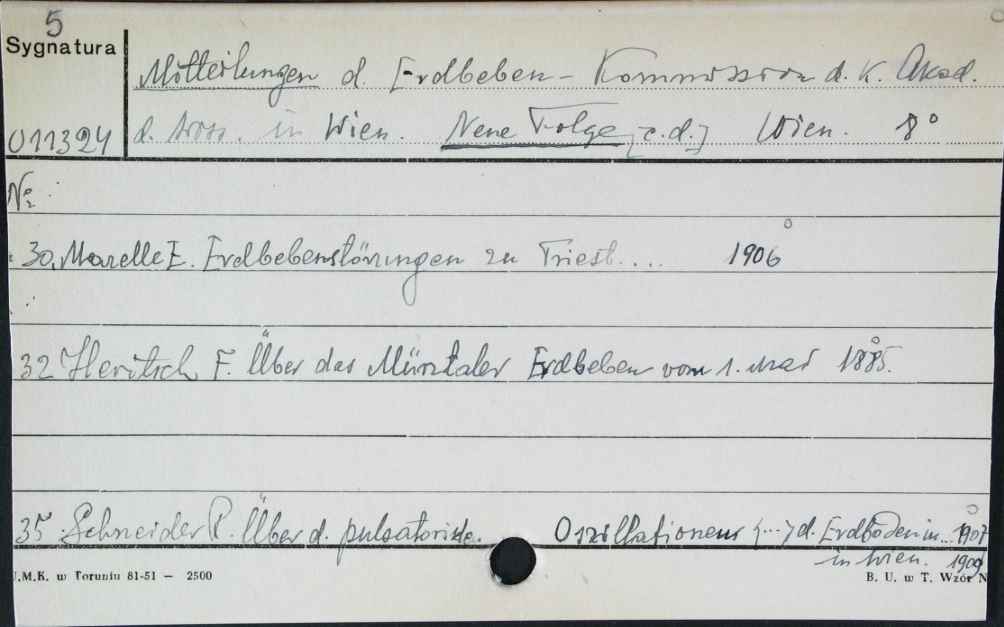 5
Sygnatura
Mitteilungen d. Erdbeben-Kommission d. K. Akad.
011324 d. Wiss. in Wien. Neue Folge [c.d.] Wien. 8°
Nr
30. Mazelle E. Erdbebenstörungen zu Triest.... 1906
32 Heritsch F. Über das Mürztaler Erdbeben vom 1. Mai 1885.
35. Schneider R. Über d. pulsatorische. Oszillationen (...) d. Erdbodens im... 1907
in Wien. 1909
U.M.K. w Toruniu 81-51 — 2500
B. U. w T. Wzór N